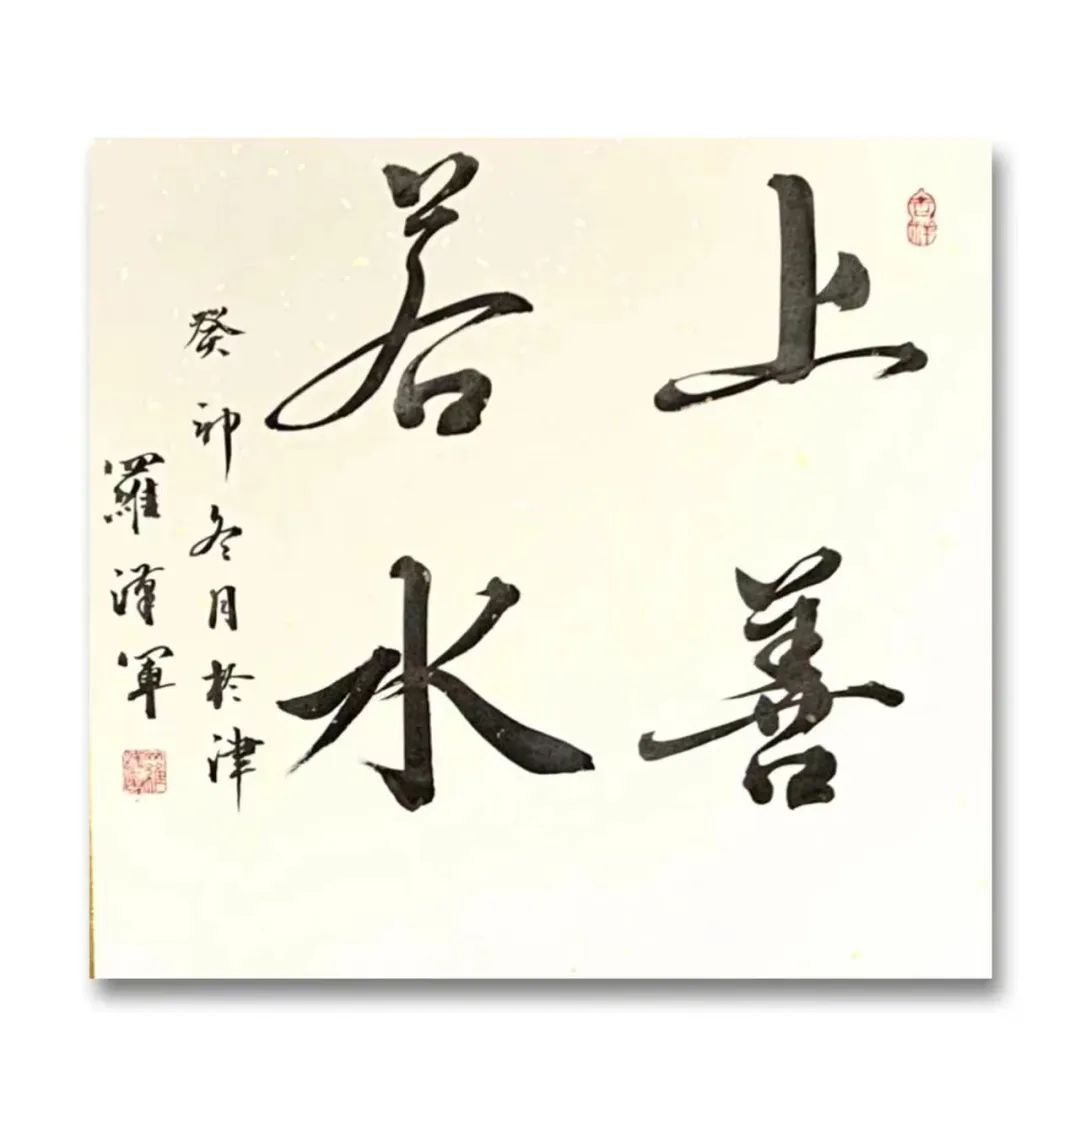 上善
若水
癸卯冬月於津
羅漢軍
吉祥